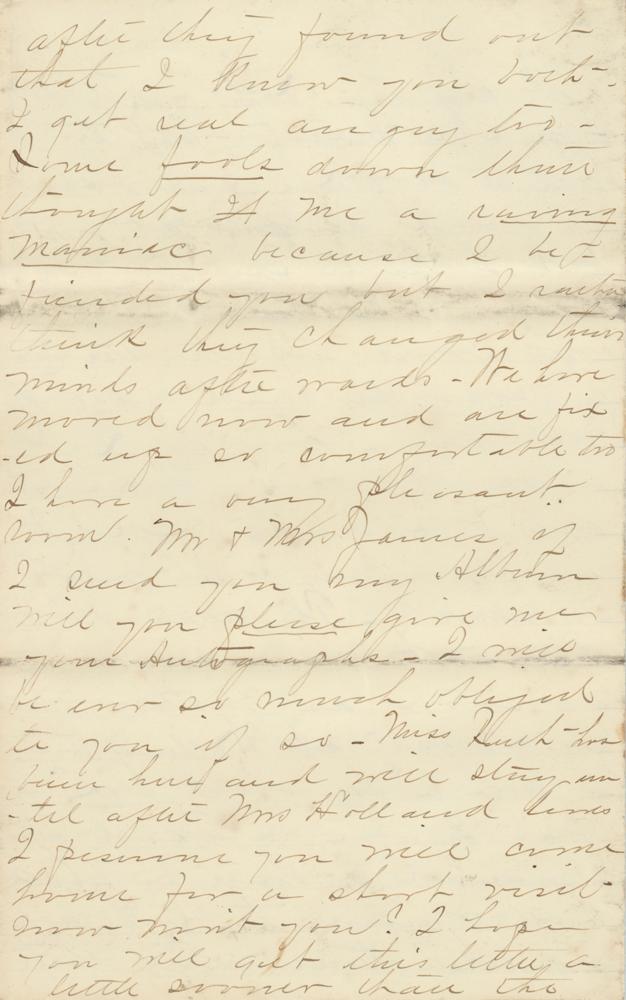 after they found out
that I know you both -
I get real angry too -
Some fools down there
thought me a raving
maniac because I be-
friended you but I rather
think they changed their
minds after wards - We have
moved now and are fix
-ed up so comfortable too
I have a very pleasant
room. Mr & Mrs James if
I send you my Album
will you please give me
your Autographs - I will
be ever so much obliged
to you if so - Miss Ruth has
been here and will stay un
-til after Mrs Holland
I presume you will come
home for a short visit
now wont you? I hope
you will get this letter a
little sooner than the